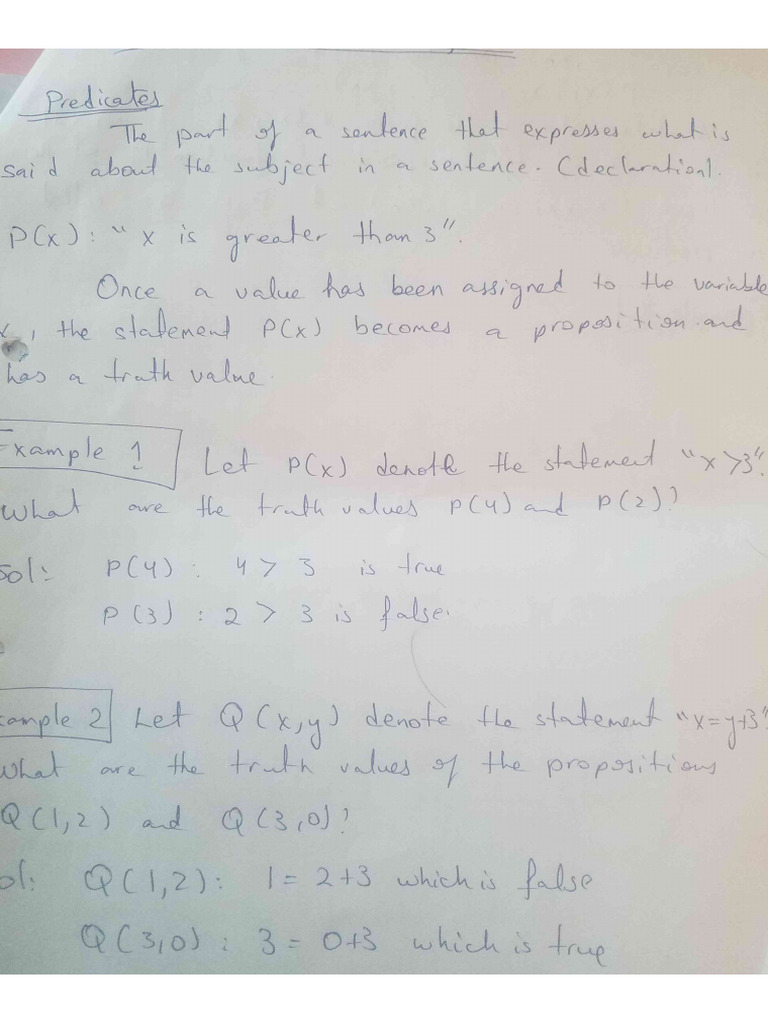 Predicates
The part of a sentence that expresses what is
said about the subject in a sentence. (declaration).
P(x): "x is greater than 3".
Once a value has been assigned to the variable
x, the statement P(x) becomes a proposition and
has a truth value.
Example 1 Let P(x) denote the statement "x>3".
What are the truth values P(4) and P(2)?
Sol: P(4): 4 > 3 is true
P(3): 2 > 3 is false.
xample 2 Let Q(x,y) denote the statement "x=y+3".
What are the truth values of the propositions
Q(1,2) and Q(3,0)?
ol: Q(1,2): 1 = 2+3 which is false
Q(3,0): 3 = 0+3 which is true